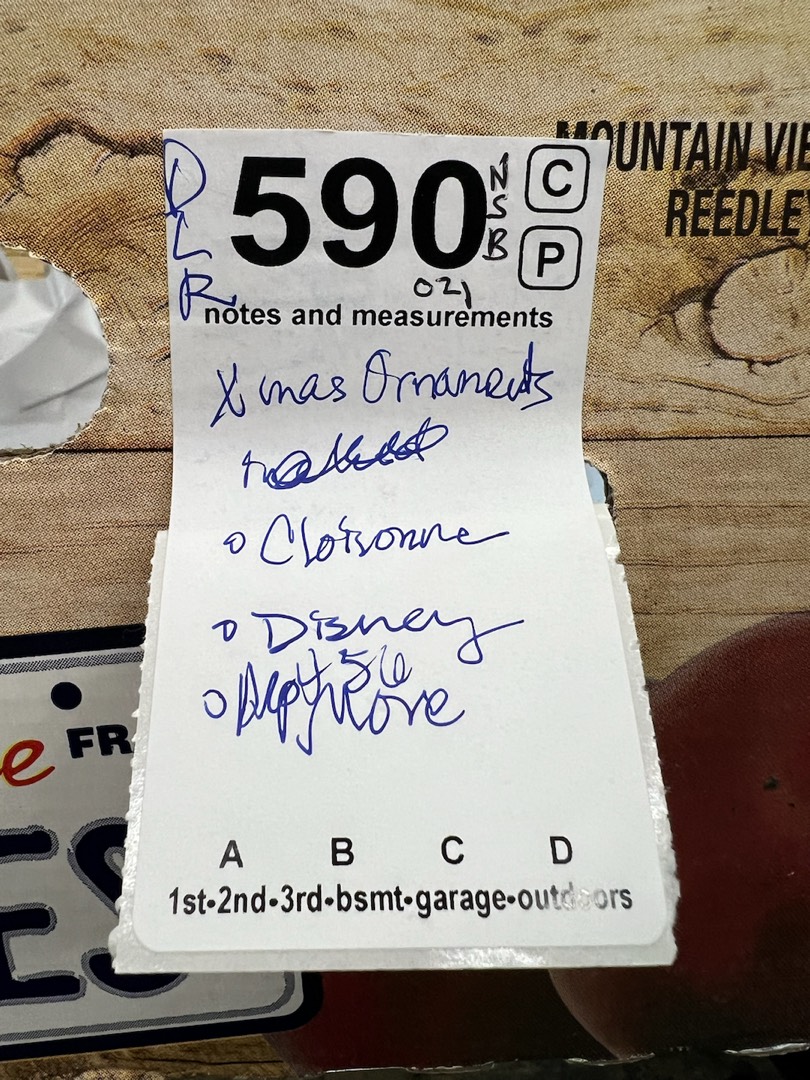 MOUNTAIN VIE
REEDLEY
D
L
R
590
N
S
B
C
P
021
notes and measurements
Xmas Ornaments
o Cloisonne
o Disney
o Dept 56
& More
FR
e
ES
A B C D
1st•2nd•3rd•bsmt•garage•outdoors